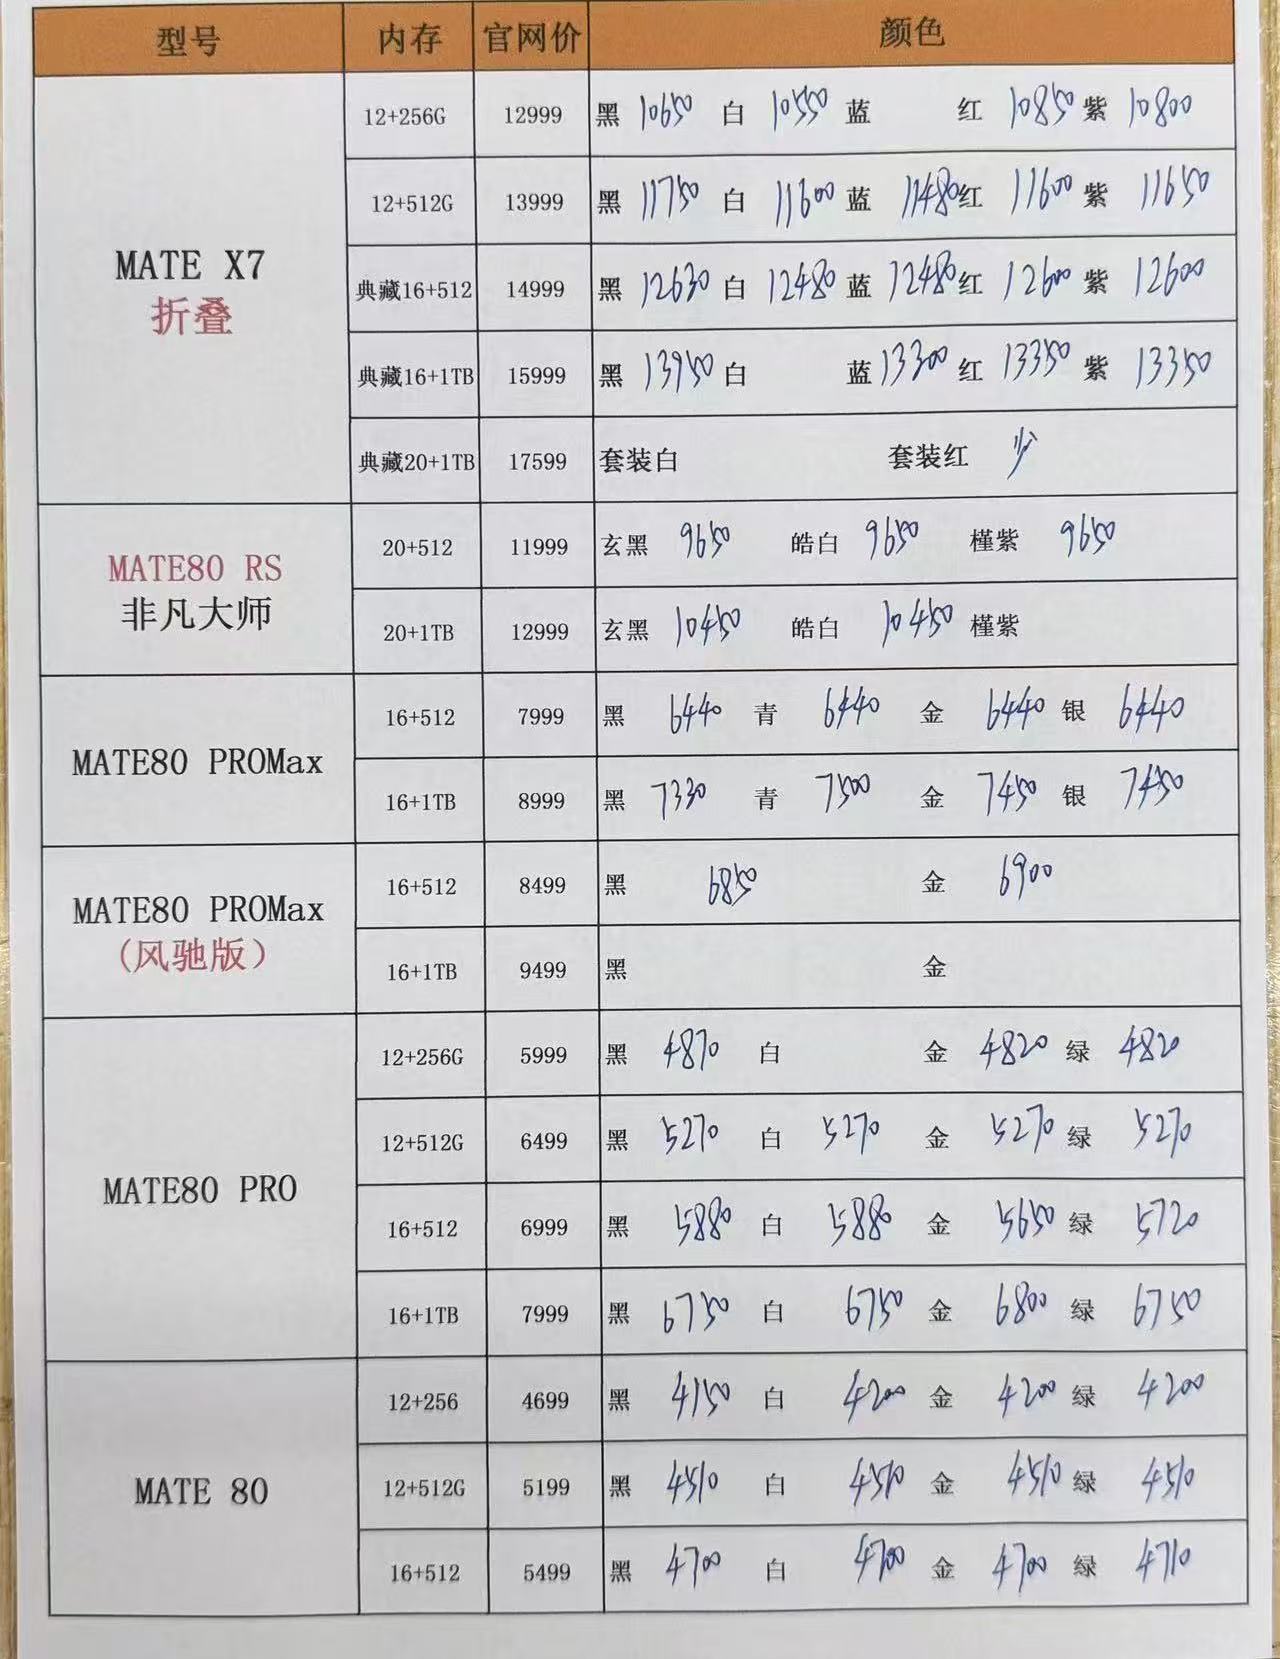 型号 内存 官网价 颜色
12+256G 12999 黑 10650 白 10550 蓝 红 10850 紫 10800
12+512G 13999 黑 11750 白 11600 蓝 11480 红 11600 紫 11650
MATE X7
折叠
典藏16+512 14999 黑 12630 白 12480 蓝 12480 红 12600 紫 12600
典藏16+1TB 15999 黑 13950 白 蓝 13300 红 13350 紫 13350
典藏20+1TB 17599 套装白 套装红 少
MATE80 RS
非凡大师
20+512 11999 玄黑 9650 皓白 9650 槿紫 9650
20+1TB 12999 玄黑 10450 皓白 10450 槿紫
MATE80 PROMax
16+512 7999 黑 6440 青 6440 金 6440 银 6440
16+1TB 8999 黑 7330 青 7500 金 7450 银 7450
MATE80 PROMax
(风驰版)
16+512 8499 黑 6850 金 6900
16+1TB 9499 黑 金
MATE80 PRO
12+256G 5999 黑 4870 白 金 4820 绿 4820
12+512G 6499 黑 5270 白 5270 金 5270 绿 5270
16+512 6999 黑 5880 白 5880 金 5650 绿 5720
16+1TB 7999 黑 6750 白 6750 金 6800 绿 6750
MATE 80
12+256 4699 黑 4150 白 4200 金 4200 绿 4200
12+512G 5199 黑 4510 白 4510 金 4510 绿 4510
16+512 5499 黑 4700 白 4700 金 4700 绿 4710